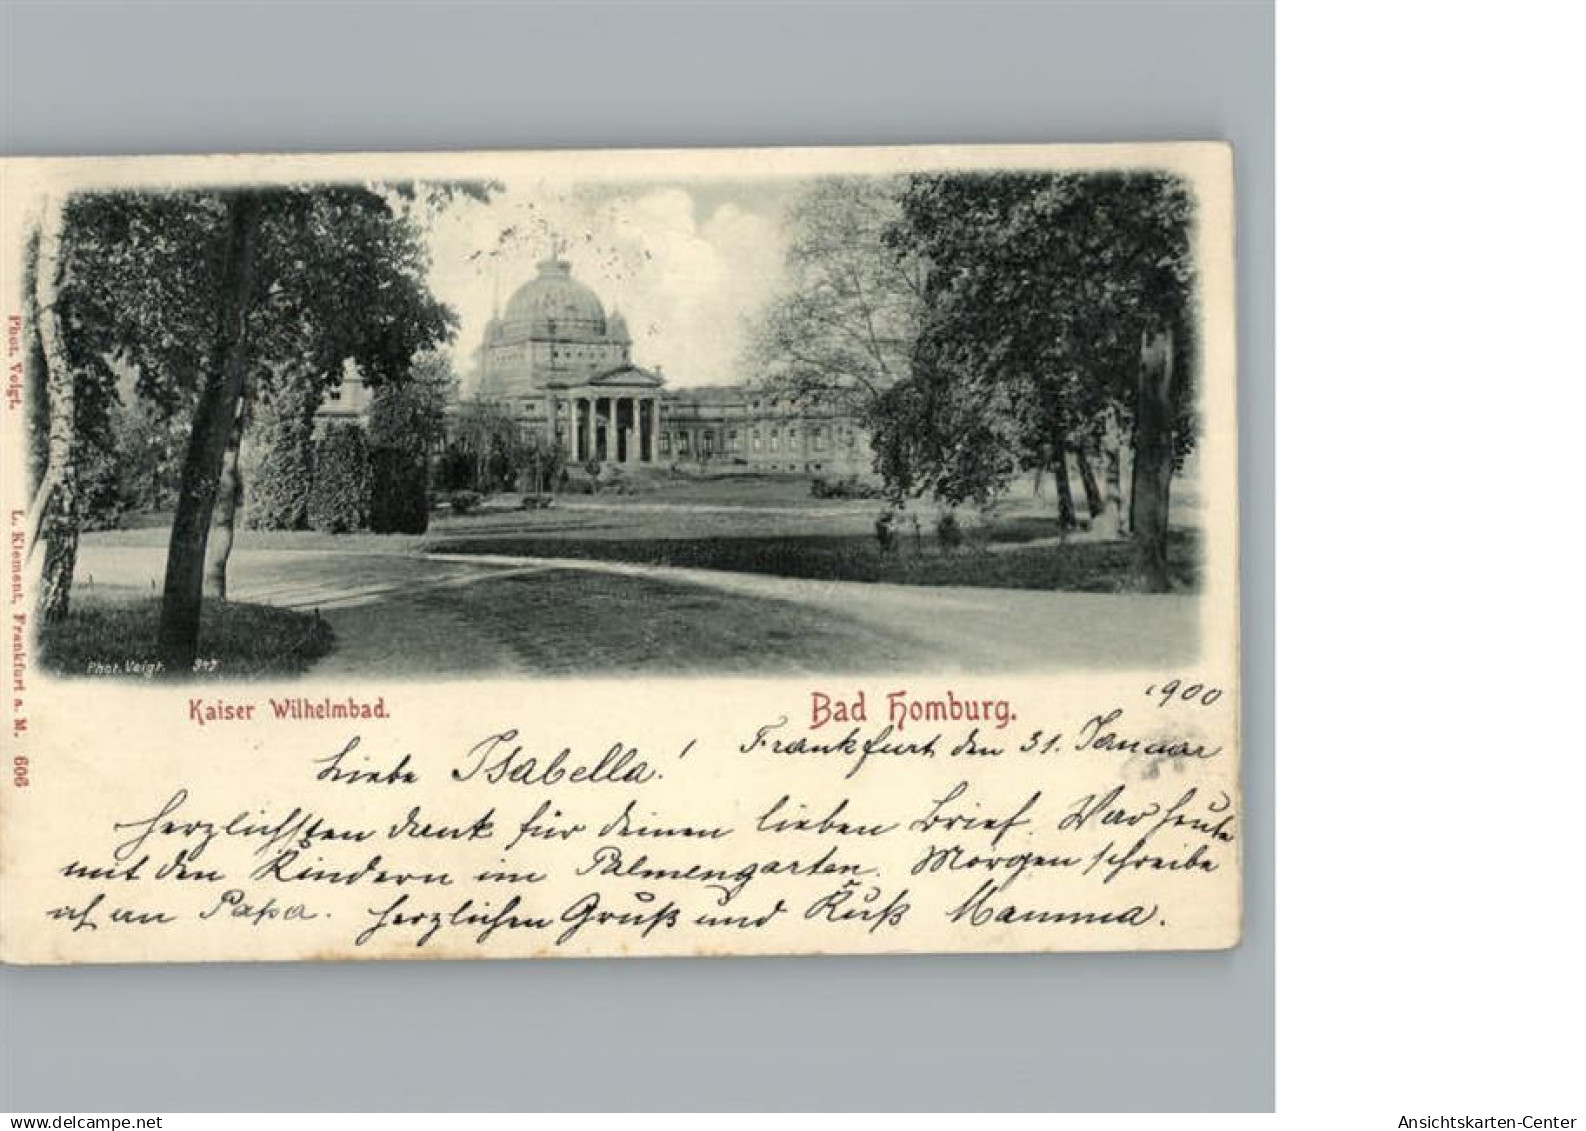 Phot. Voigt.
L. Klement, Frankfurt a. M. 606
Phot. Voigt. 347
Kaiser Wilhelmbad.
Bad Homburg.
1900
Frankfurt den 31. Januar
Liebe Isabella!
Herzlichsten Dank für deinen lieben Brief. War heute
mit den Kindern im Palmengarten. Morgen schreibe
ich an Papa. Herzlichen Gruß und Kuß Mamma.
www.delcampe.net
Ansichtskarten-Center